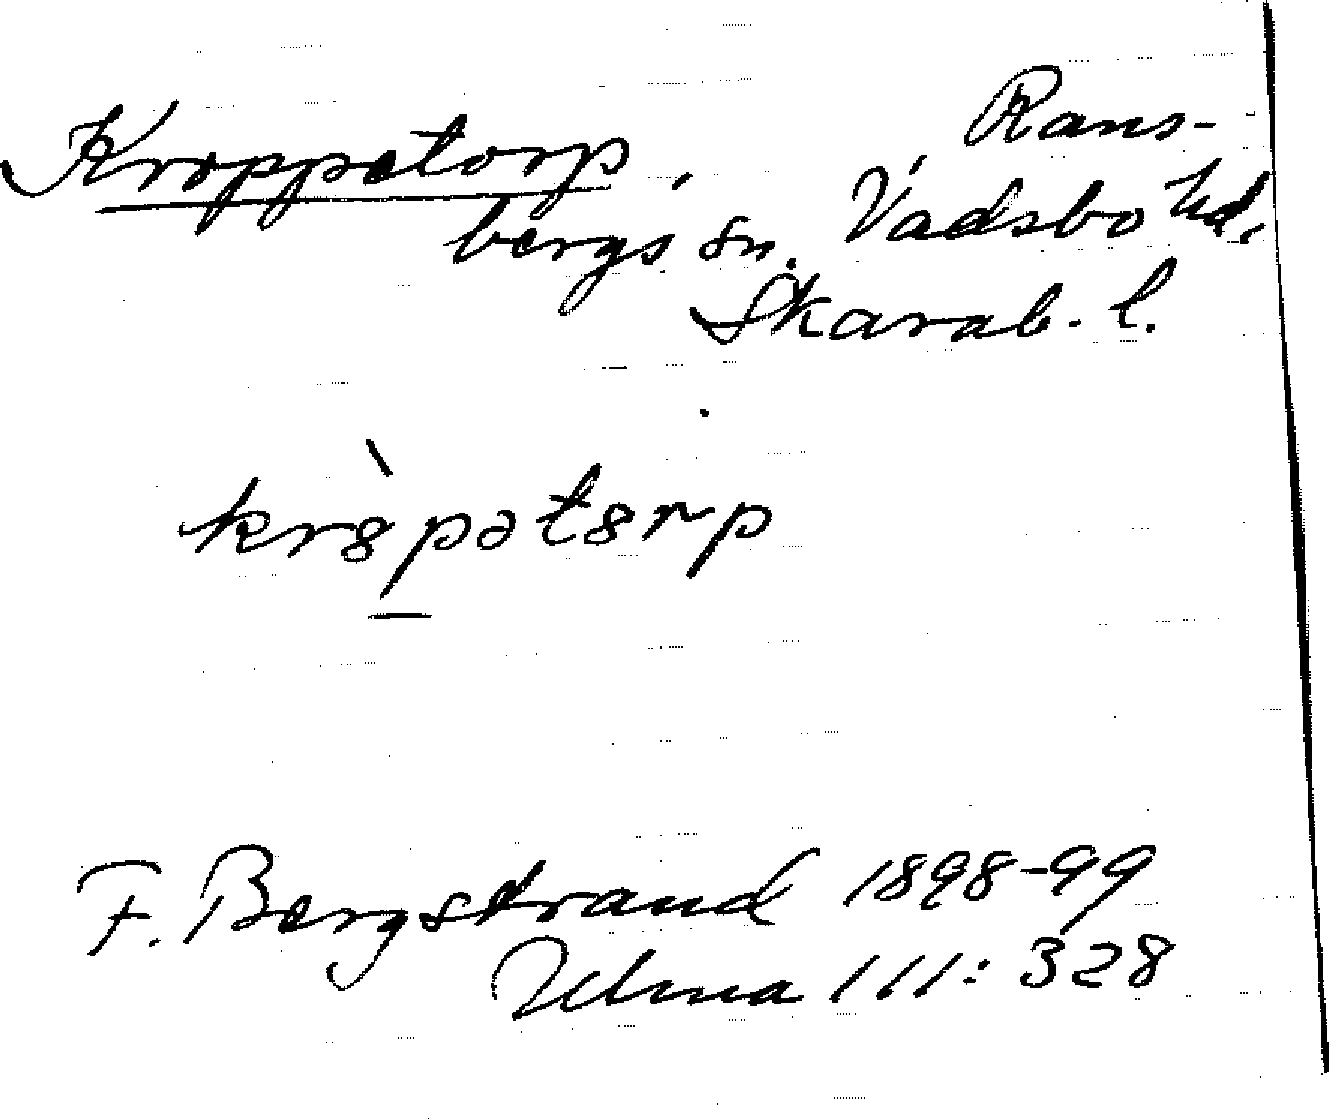 Kroppetorp, Rans-
bergs sn. Vadsbo hd.
Skarab. l.
krȣ̀pətȣrp
F. Bergstrand 1898-99
Ulma 111: 328